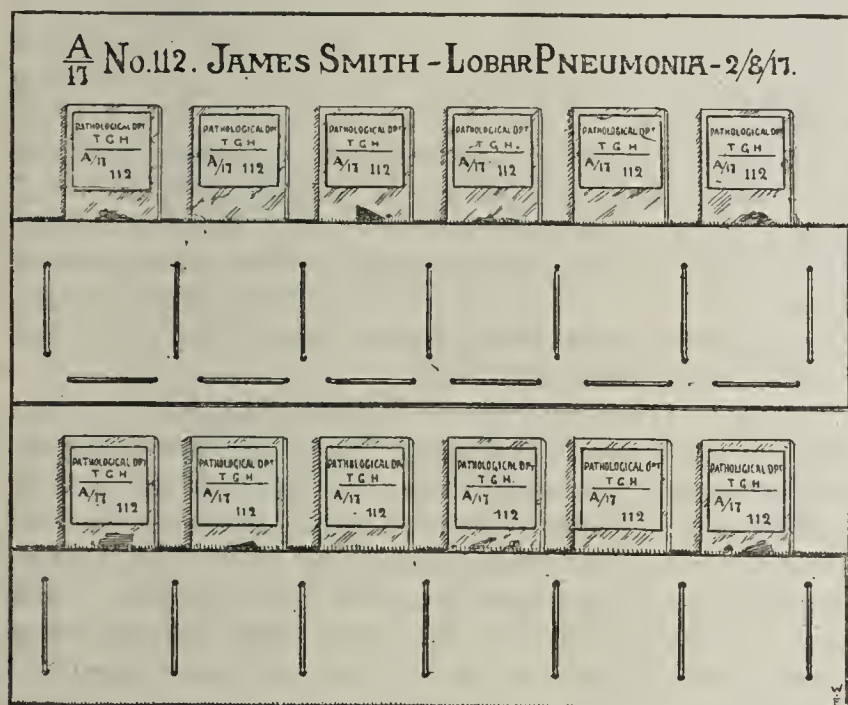 A/17 No.112. JAMES SMITH - LOBAR PNEUMONIA - 2/8/17.
PATHOLOGICAL DPT
T G H
A/17 112
PATHOLOGICAL DPT
T G H
A/17 112
PATHOLOGICAL DPT
T G H
A/17 112
PATHOLOGICAL DPT
T G H.
A/17 112
PATHOLOGICAL DPT
T G H
A/17 112
PATHOLOGICAL DPT
T G H
A/17 112
PATHOLOGICAL DPT
T G H
A/17
112
PATHOLOGICAL DPT
T G H
A/17
112
PATHOLOGICAL DPT
T G H
A/17
112
PATHOLOGICAL DPT
T G H.
A/17
112
PATHOLOGICAL DPT
T G H
A/17
112
PATHOLOGICAL DPT
T G H
A/17
112